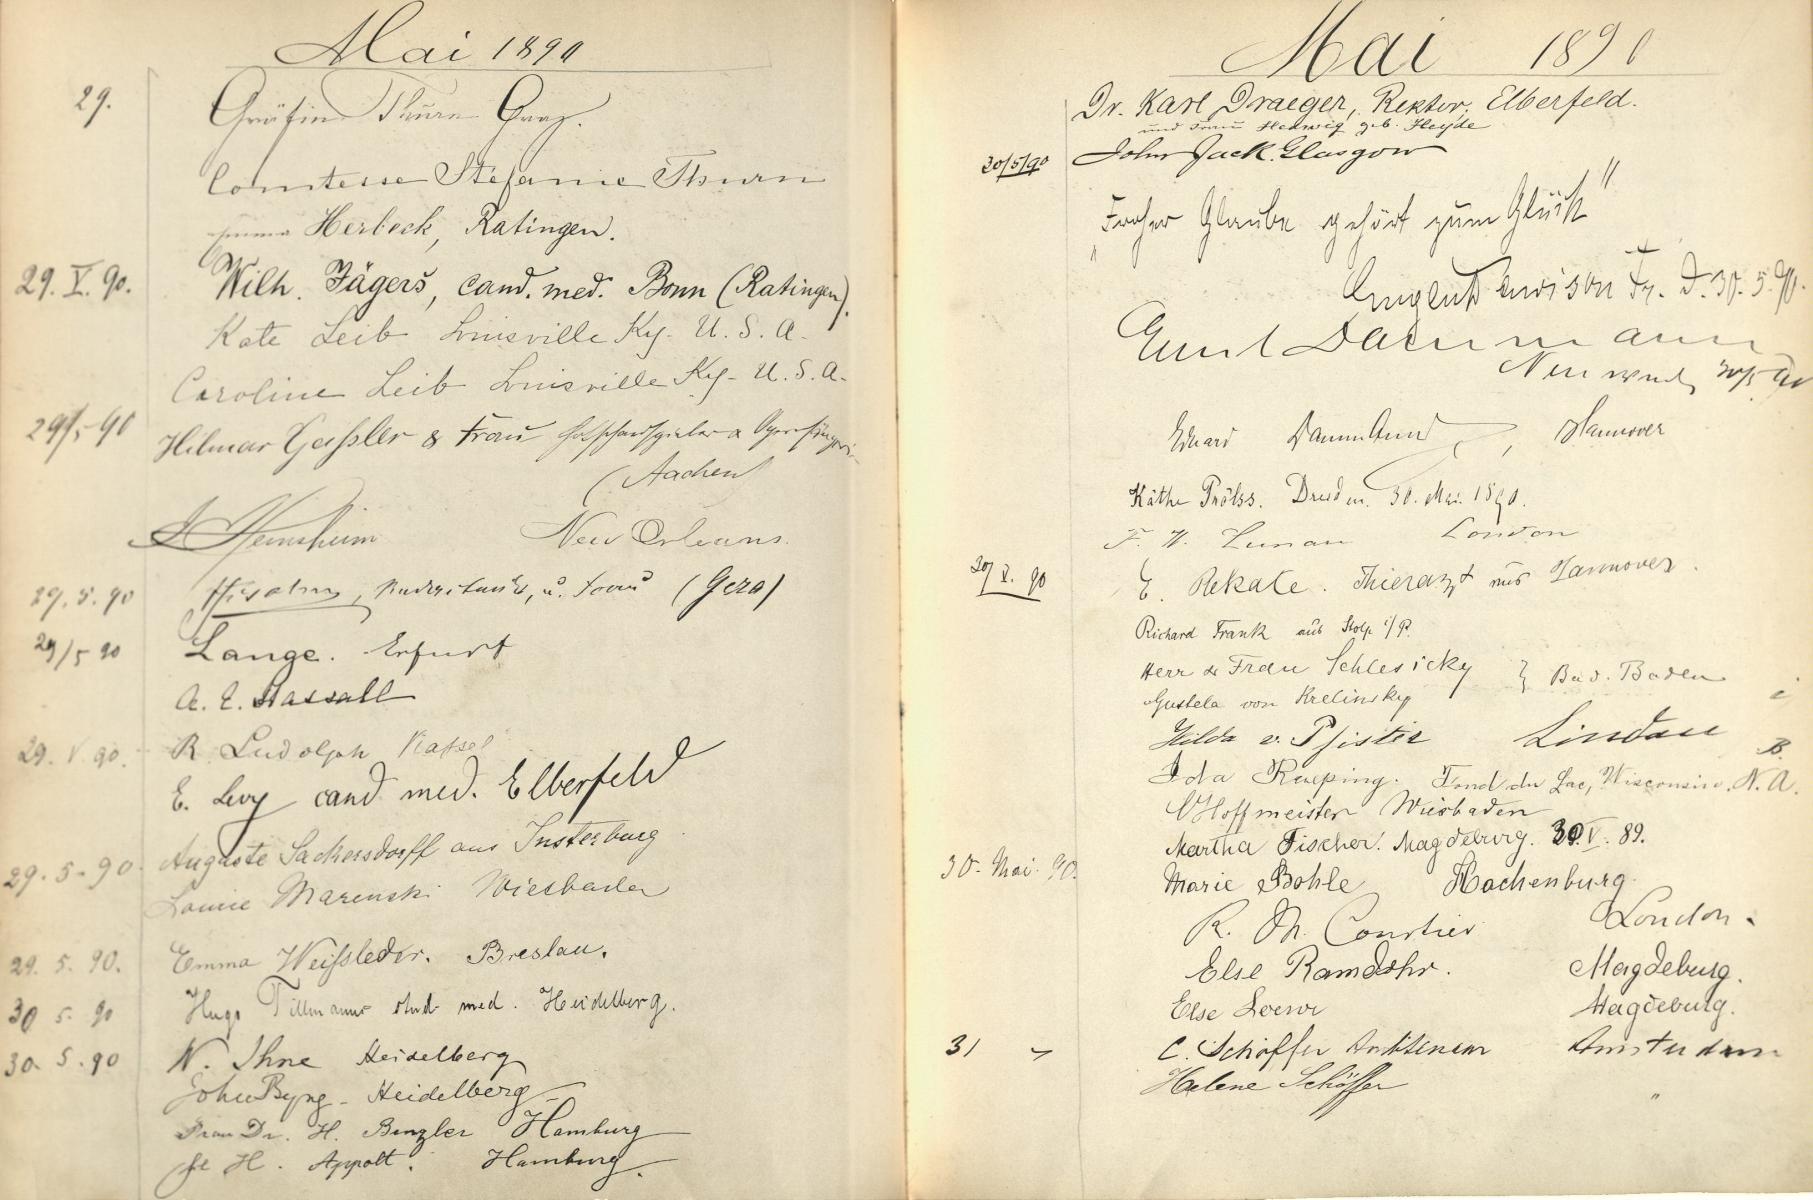 Mai 1890
29. Gräfin Thurn Graz.
Comtesse Stefanie Thurn
Herbeck, Ratingen.
29. V. 90. Wilh. Jägers, cand. med. Bonn (Ratingen).
Kate Leib Louisville Ky. U. S. A.
Caroline Leib Louisville Ky. U. S. A.
29/5 90 Hilmar Geißler & Frau Hofschauspieler & Opernsängerin
(Aachen)
Hernsheim New Orleans.
29. 5. 90 u. Frau (Gera)
29/5 90 Lange. Erfurt
A. E. Hassall
29. V. 90. R. Ludolph Kassel
E. Levy cand med. Elberfeld
Auguste Sackersdorff aus Insterburg
29. 5. 90. Louise Marenski Wiesbaden
29. 5. 90. Emma Weißleder. Breslau.
30 5. 90 Hugo Tillmanns stud med. Heidelberg.
30. 5. 90 N. Ihne Heidelberg
John Byng - Heidelberg
Frau Dr. H. Benzler Hamburg
H. Appolt. Hamburg.
Mai 1890
Dr. Karl Draeger, Rektor, Elberfeld.
und Frau Hedwig geb. Heyde
30/5/90 John Jack. Glasgow
„Froher Glaube gehört zum Glück"
Fr. D. 30. 5. 90.
Emil Daenmann
Neuwied 30/5 90
Eduard Hannover
Käthe Prölss. Dresden. 30. Mai. 1890.
F. W. Lunau London
30/V. 90 E. Rekate. Thierarzt aus Hannover.
Richard Frank aus Stolp i/P.
Herr & Frau Schlesicky } Bad. Baden
Gustela von Krelinsky
Hilda v. Pfister Lindau i. B.
Ida Rueping. Fond du Lac, Wisconsin. N. A.
Hoffmeister Wiesbaden
Martha Fischer. Magdeburg. 30. V. 89.
30. Mai. 90. Marie Bohle Hachenburg.
R. M. London.
Else Ramdohr. Magdeburg.
Else Loewe Magdeburg.
31 " C. Schöffer Amsterdam
Helene Schöffer "